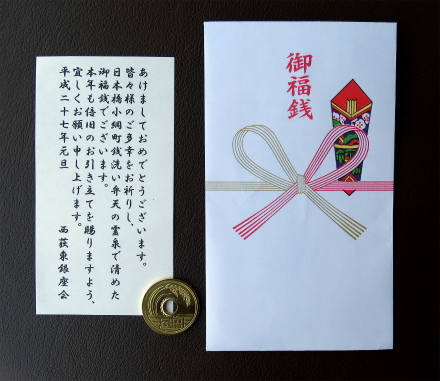 あけましておめでとうございます。
皆々様のご多幸をお祈りし、
日本橋小網町銭洗い弁天の霊泉で清めた
御福銭でございます。
本年も倍旧のお引き立てを賜りますよう、
宜しくお願い申し上げます。
平成二十七年元旦
西荻東銀座会
御福銭